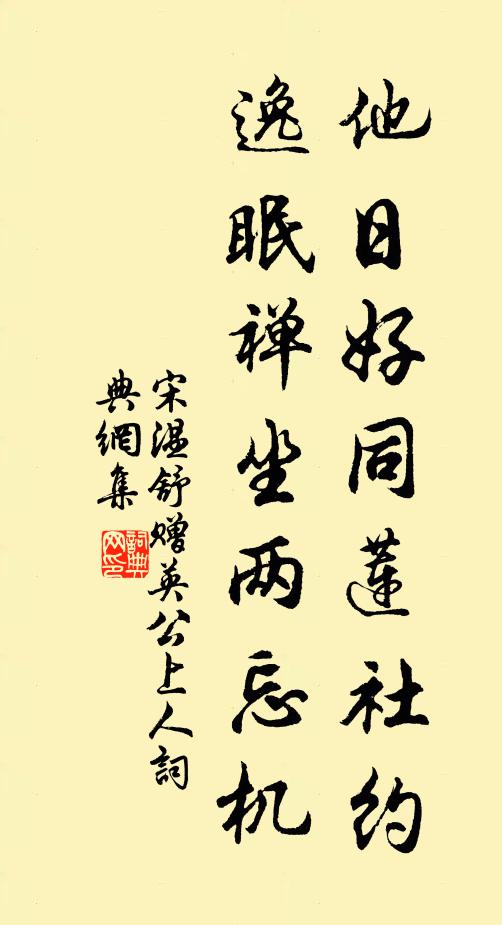 他日好同蓮社约
逸眠禅坐两忘机
宋温舒赠英公上人詞
典網集
詞典网印